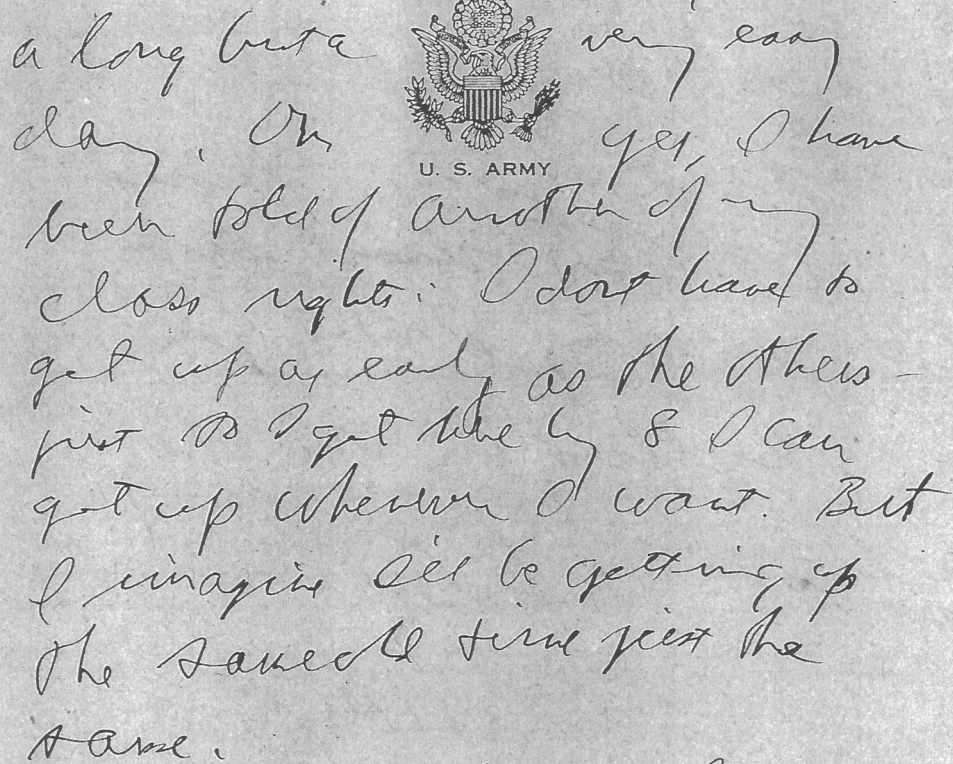 a long but a very easy
day. Oh, yes, I have
U. S. ARMY
been told of another of my
class rights: I dont have to
get up as early as the others –
just so I get here by 8 I can
get up whenever I want. But
I imagine I'll be getting up
the same old time just the
same.